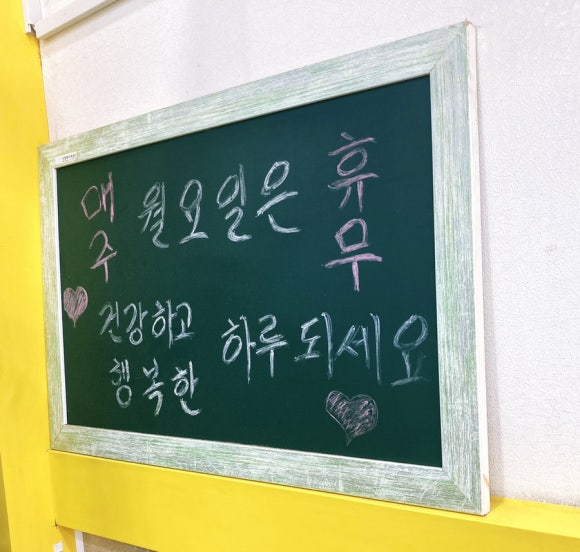 매주 월요일은 휴무
건강하고
행복한 하루 되세요